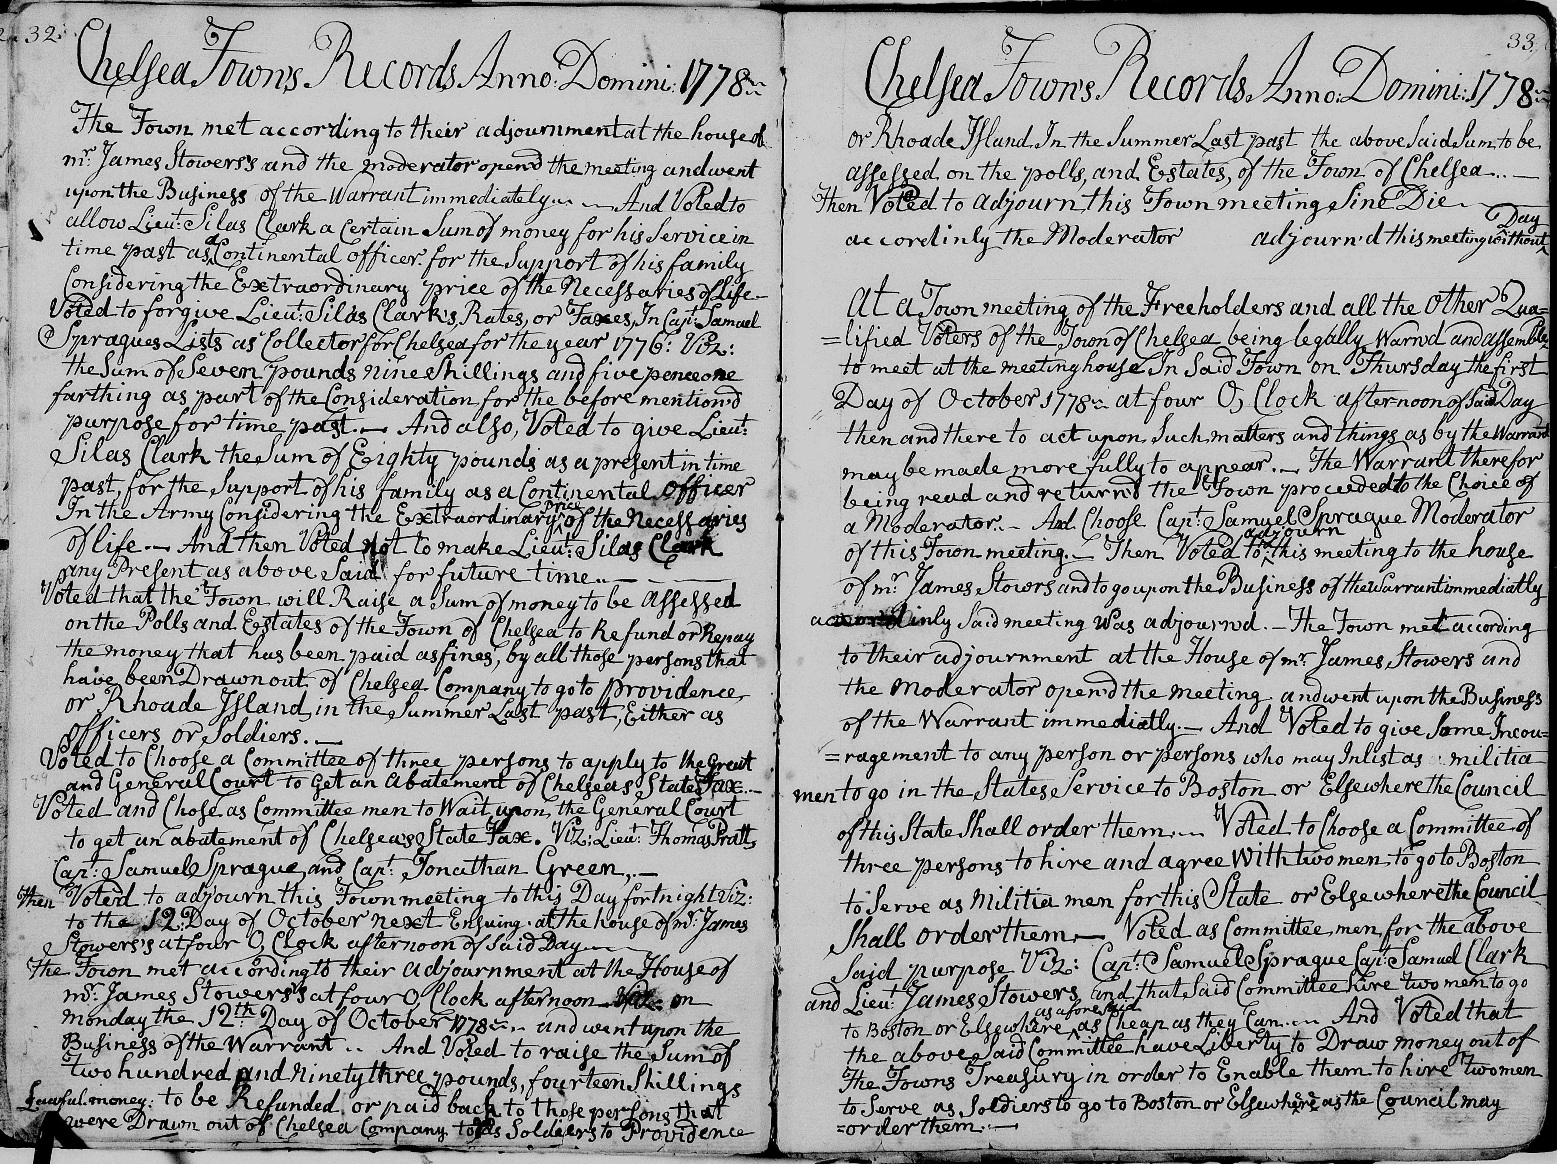 32
Chelsea Town's Records Anno: Domini: 1778
The Town met according to their adjournment at the house of
mr. James Stowers's and the moderator opend the meeting and went
upon the Business of the Warrant immediately. And Voted to
allow Lieut. Silas Clark a Certain Sum of money for his Service in
time past as a Continental officer for the Support of his family
Considering the Extraordinary price of the Necessaries of Life
Voted to forgive Lieut: Silas Clark's Rates, or Taxes, In Capt: Samuel
Spragues Lists as Collector for Chelsea for the year 1776: Viz:
the Sum of Seven pounds nine Shillings and five pence one
farthing as part of the Consideration for the before mention'd
purpose for time past. — And also, Voted to give Lieut:
Silas Clark the Sum of Eighty pounds as a present in time
past, for the Support of his family as a Continental officer
In the Army Considering the Extraordinary price of the Necessaries
of life. — And then Voted not to make Lieut: Silas Clark
any Present as above Said for future time.
Voted that the Town will Raise a Sum of money to be Assessed
on the Polls and Estates of the Town of Chelsea to Refund or Repay
the money that has been paid as fines, by all those persons that
have been Drawn out of Chelsea Company to go to Providence,
or Rhoade Island, in the Summer Last past, Either as
officers or Soldiers. —
Voted to Choose a Committee of three persons to apply to the Great
and General Court to Get an Abatement of Chelseas States Tax. —
Voted and Chose as Committee men to Wait upon the General Court
to get an abatement of Chelsea's State Tax. Viz: Lieut: Thomas Pratt,
Capt: Samuel Sprague, and Capt: Jonathan Green, —
Then Voted to adjourn this Town meeting to this Day fortnight Viz:
to the 12: Day of October next Ensuing at the house of mr. James
Stowers's at four O, Clock afternoon of Said Day
The Town met according to their adjournment at the House of
mr. James Stowers's at four O, Clock afternoon on
monday the 12th Day of October 1778 and went upon the
Business of the Warrant .. And Voted to raise the Sum of
two hundred and ninety three pounds, fourteen Shillings
Lawful money: to be Refunded or paid back to those persons that
were Drawn out of Chelsea Company to as Soldiers to Providence
33
Chelsea Town's Records Anno: Domini: 1778
or Rhoade Island In the Summer Last past the above Said Sum to be
assessed on the polls, and Estates, of the Town of Chelsea.. —
Then Voted to adjourn this Town meeting Sine Die
accordinly the Moderator adjourn'd this meeting without Day
At a Town meeting of the Freeholders and all the other Qua=
=lified Voters of the Town of Chelsea being legally Warn'd and assembled
to meet at the meetinghouse In Said Town on Thursday the first
Day of October 1778 at four O, Clock afternoon of Said Day
then and there to act upon Such matters and things as by the Warrant
may be made more fully to appear. — The Warrant therefor
being read and return'd the Town proceeded to the Choice of
a Moderator. — And Choose Capt: Samuel Sprague Moderator
of this Town meeting. — Then Voted to adjourn this meeting to the house
of mr. James Stowers and to go upon the Business of the Warrant immediatly
accordinly Said meeting was adjournd. — The Town met according
to their adjournment at the House of mr. James Stowers and
the Moderator opend the meeting and went upon the Business
of the Warrant immediatly. — And Voted to give Some Incou=
=ragement to any person or persons who may Inlist as militia
men to go in the States Service to Boston or Elsewhere the Council
of this State Shall order them. — Voted to Choose a Committee of
three persons to hire and agree With two men to go to Boston
to Serve as Militia men for this State or Elsewhere the Council
Shall order them — Voted as Committee men for the above
Said purpose Viz: Capt: Samuel Sprague Capt: Samuel Clark
and Lieut: James Stowers and that Said Committee hire two men to go
to Boston or Elsewhere as aforesaid as Cheap as they Can. — And Voted that
the above Said Committee have Liberty to Draw money out of
The Towns Treasury in order to Enable them to hire two men
to Serve as Soldiers to go to Boston or Elsewhere as the Council may
=order them. —